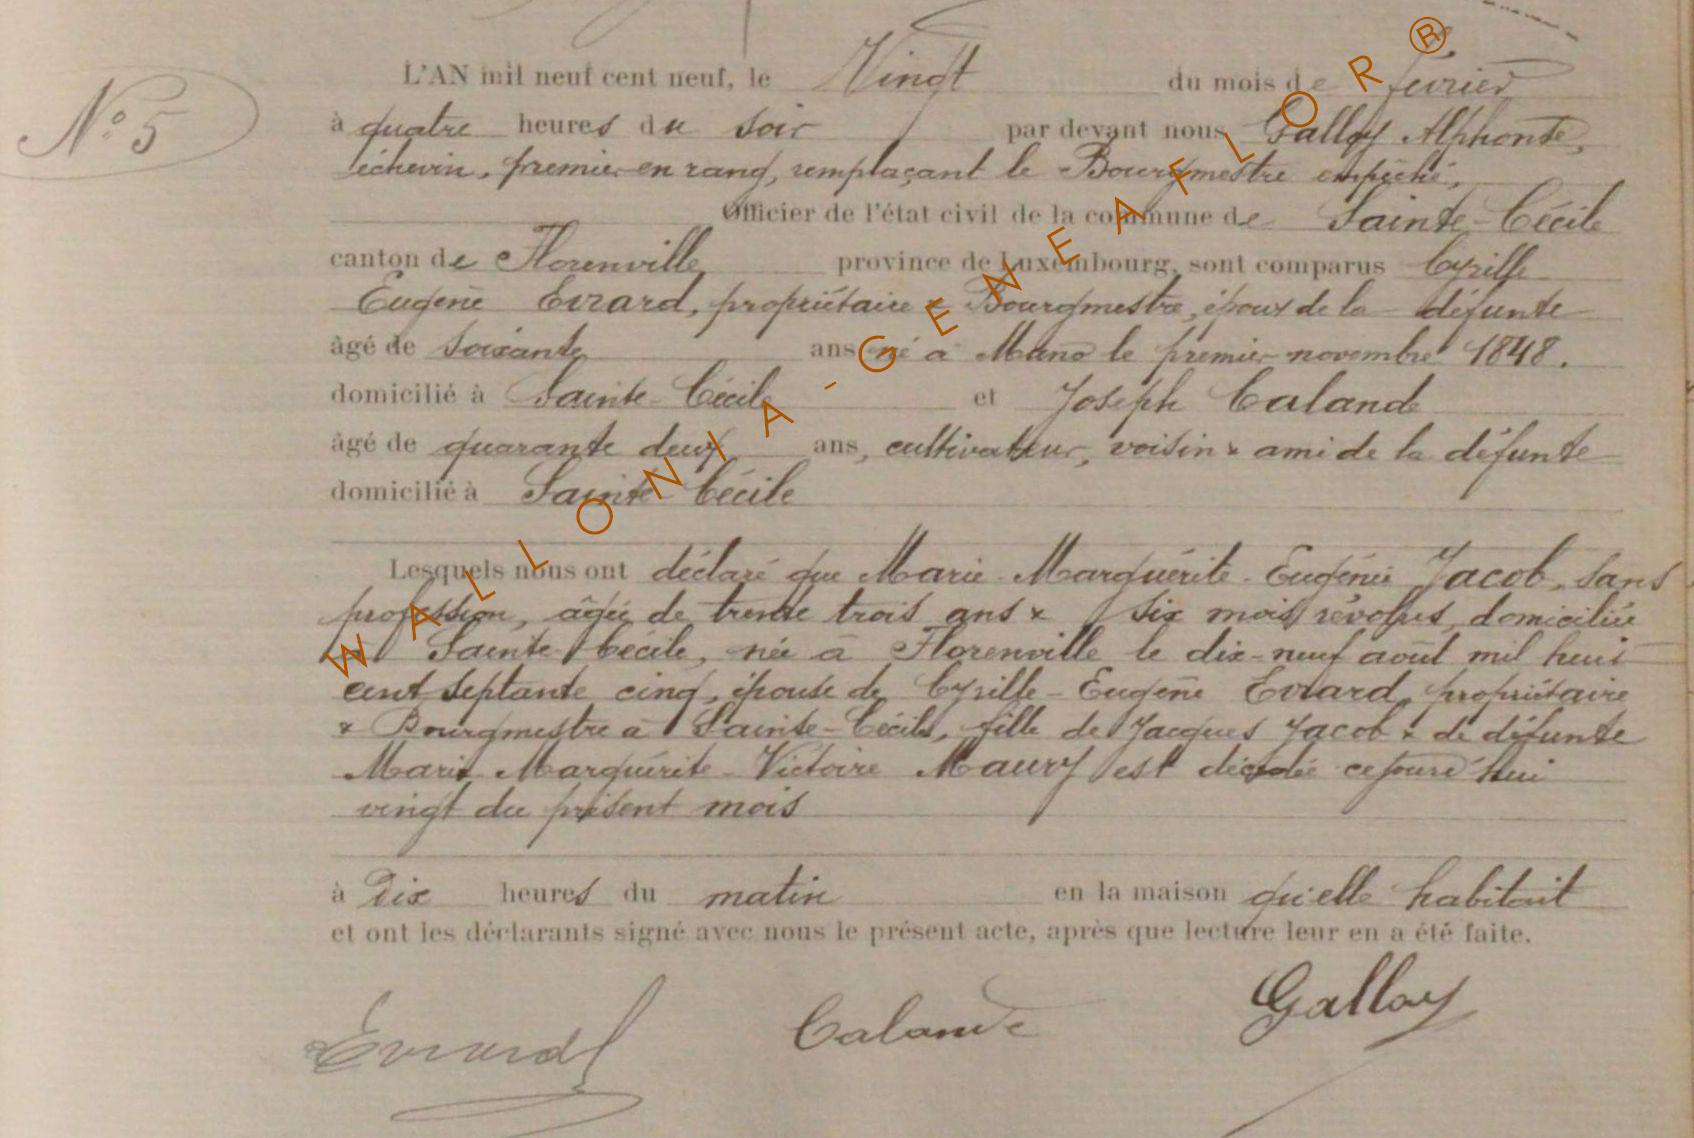 N° 5
L'AN mil neuf cent neuf, le Vingt du mois de février
à quatre heures du soir par devant nous Galloy Alphonse,
échevin, premier en rang, remplaçant le Bourgmestre empêché,
Officier de l'état civil de la commune de Sainte-Cécile
canton de Florenville province de Luxembourg, sont comparus Cyrille
Eugène Evrard, propriétaire & Bourgmestre, époux de la défunte
âgé de soixante ans né à Muno le premier novembre 1848.
domicilié à Sainte-Cécile et Joseph Calande
âgé de quarante deux ans, cultivateur, voisin & ami de la défunte
domicilié à Sainte Cécile
Lesquels nous ont déclaré que Marie-Marguérite-Eugénie Jacob, sans
profession, âgée de trente trois ans & six mois révolus, domiciliée
à Sainte-Cécile, née à Florenville le dix-neuf août mil huit
cent septante cinq, épouse de Cyrille-Eugène Evrard, propriétaire
& Bourgmestre à Sainte-Cécile, fille de Jacques Jacob & de défunte
Marie Marguérite-Victoire Maury est décédée cejourd'hui
vingt du présent mois
à Dix heures du matin en la maison qu'elle habitait
et ont les déclarants signé avec nous le présent acte, après que lecture leur en a été faite.
Evrard Calande Galloy
WALLONIA-GENEAFLOR®